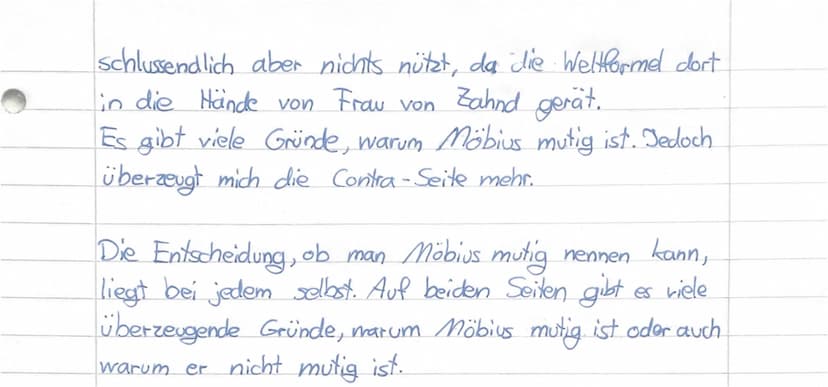 schlussendlich aber nichts nützt, da die Weltformel dort
in die Hände von Frau von Zahnd gerät.
Es gibt viele Gründe, warum Möbius mutig ist. Jedoch
überzeugt mich die Contra-Seite mehr.
Die Entscheidung, ob man Möbius mutig nennen kann,
liegt bei jedem selbst. Auf beiden Seiten gibt es viele
überzeugende Gründe, warum Möbius mutig ist oder auch
warum er nicht mutig ist.